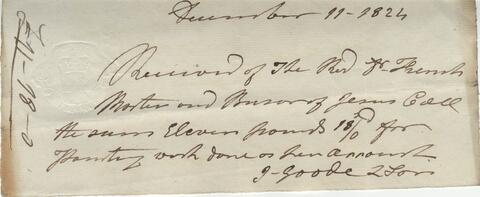 December 11 - 1824
Received of The Revd Dr French
Master and Bursor of Jesus Coll
the sum Eleven pounds 18/0 for
Painting work done as per Account
J Goode & Son
£11-18-0